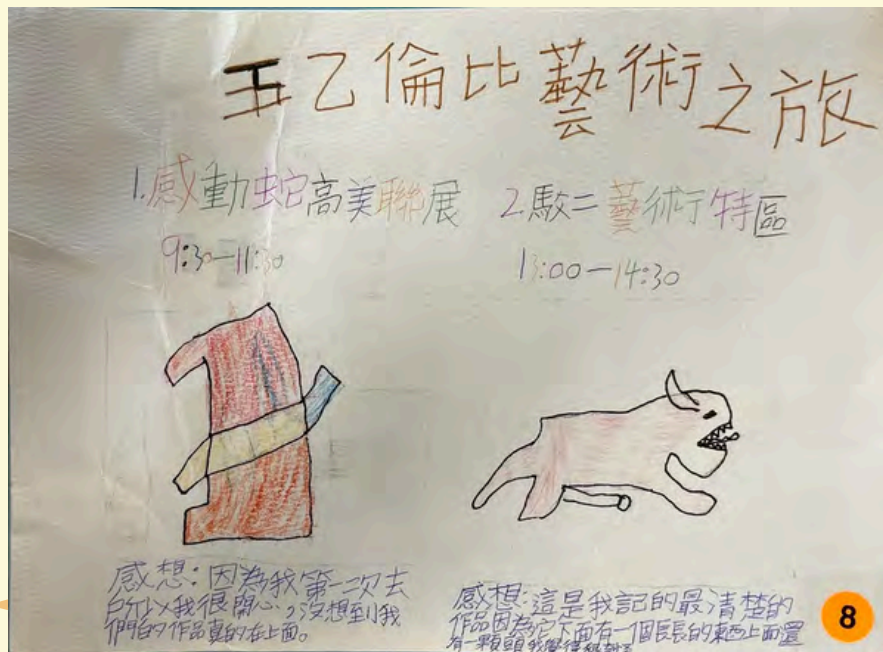 五乙倫比藝術之旅
1.感動蛇高美聯展
9:30-11:30
2.駁二藝術特區
13:00-14:30
感想:因為我第一次去
所以我很開心,沒想到我
們的作品真的在上面。
感想:這是我記的最清楚的
作品因為它下面有一個長長的東西上面還
有一顆頭我覺得
8